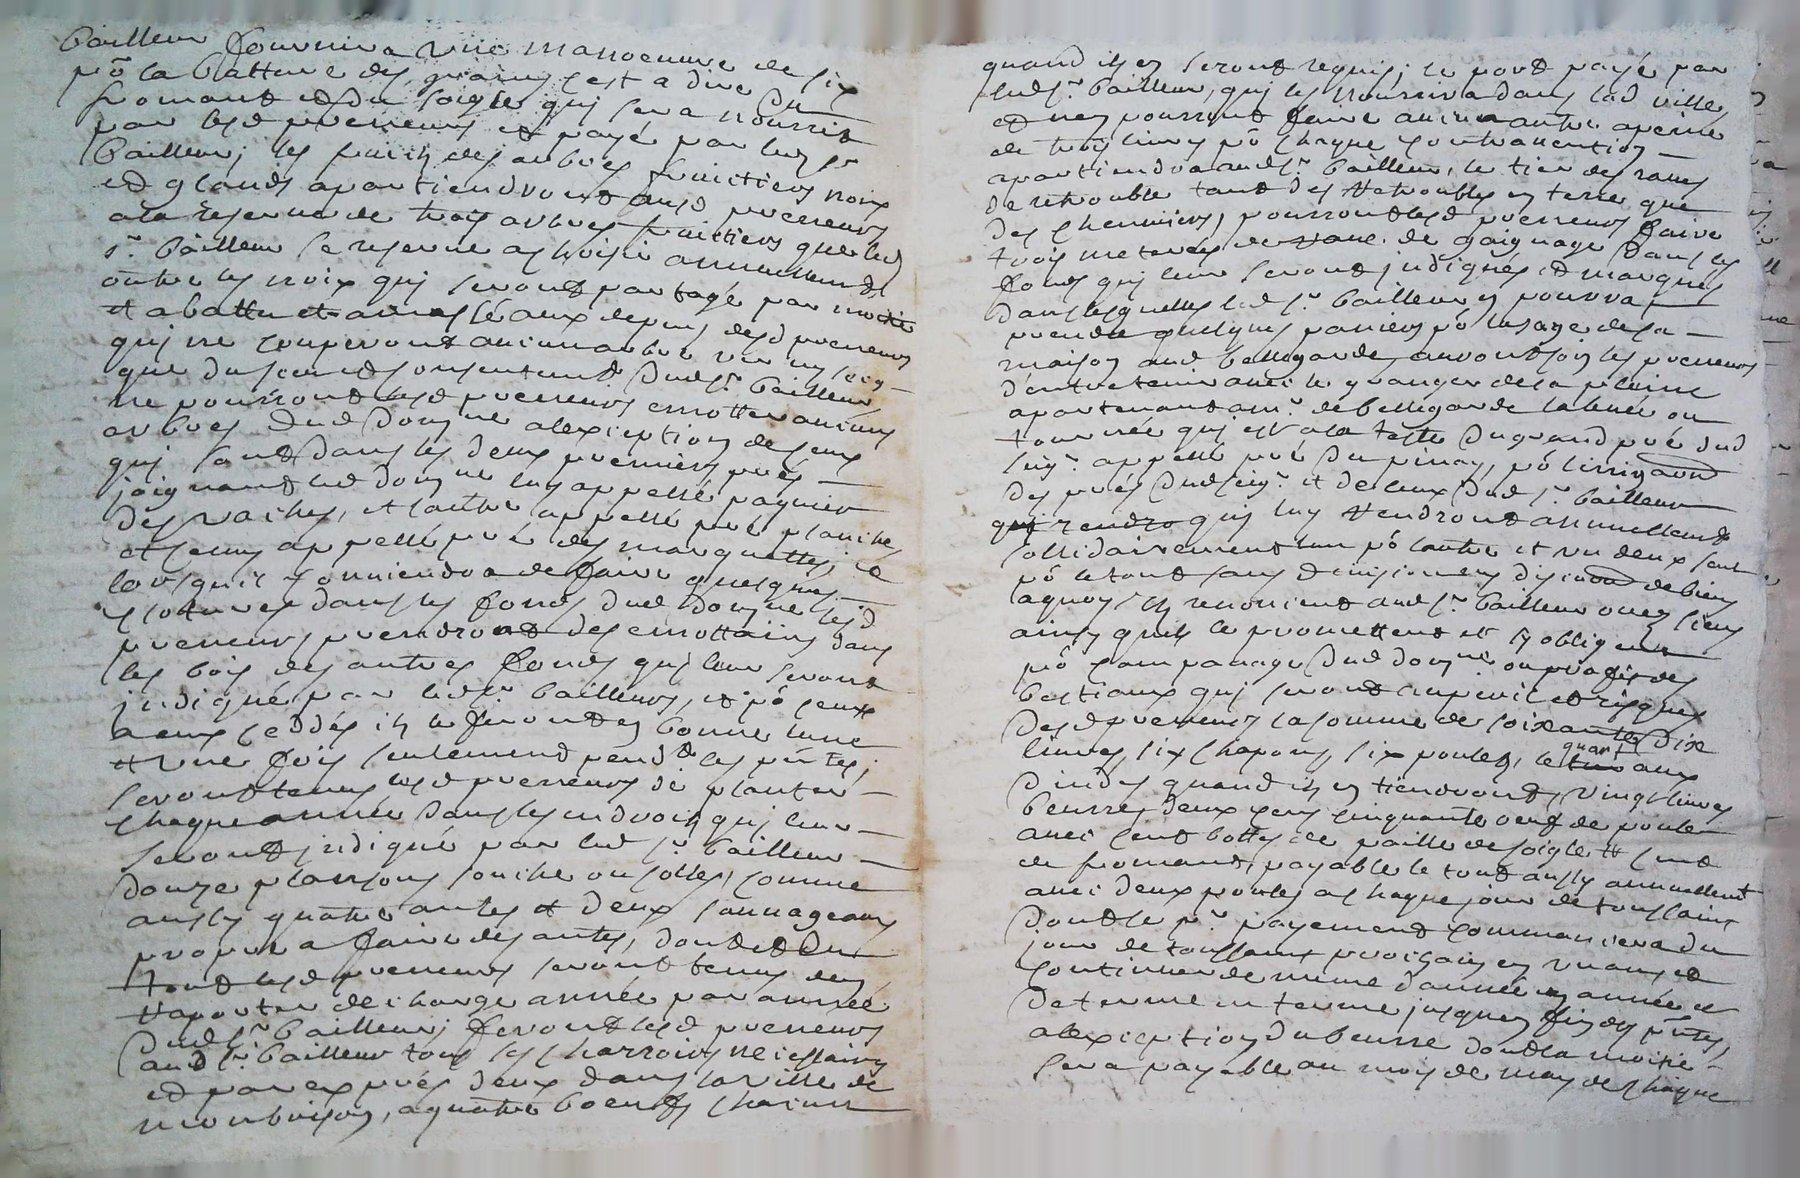 bailleur fournira une manoeuvre de six
pō la batture des grains c'est a dire du
fromant et du soigle qui sera nourrit
par lesd preneurs et payé par led sr
bailleur; les fruits des arbres fruictiers noix
et glands apartiendront ausd preneurs
a la reserve de trois arbres fruictiers que led
sr bailleur se reserve a choisir annuellemt
outre les noix qui seront partagé par moitié
et abattu et amassé aux depens desd preneurs
qui ne couperont aucun arbre vif ny secq
que du sceu et consentement dud sr bailleur
ne pourront lesd preneurs emotter aucuns
arbres dud domne a lexception de ceux
qui sont dans les deux premiers prés
joignant led domne lun appellé paquier
des vaches, et lautre appellé pré planche
et ceux appellé pré des marquettes; et
lorsquil conviendra de faire quelques
clotures dans les fonds dud domne lesd
preneurs prendront des emottains dans
les bois des autres fonds qui leur seront
indiqué par led sr bailleur, et pō ceux
a eux ceddés ils le feront en bonne lune
et une fois seulement pendt les pntes;
seront tenus lesd preneurs de planter
chaque année dans les endroits qui leur
seront indiqué par led sr bailleur
douze plançons souche ou solles, comme
aussy quatre antes et deux sauvageaux
propre a faire des antes, dont et du
tout lesd preneurs seront tenus den
raporter decharge année par année
dud sr bailleur; feront lesd preneurs
aud sr bailleur tous les charrois necessaires
et par exprés deux dans la ville de
monbrison, a quatre boeufs chacun
quand ils en seront requis; le port payé par
led sr bailleur, qui les nourrira dans lad ville
et n'en pourront faire aucun autre a peine
de trois livres pō chaque contravention
apartiendra aud sr bailleur, le tier des raves
de retrouble tant des retroubles en terre que
des chenniers, pourront lesd preneurs faire
trois meterées de rave de gaignage dans les
fonds qui leur seront indiqués et marqués
dans lesquelles led sr bailleur en pourra
prendre quelques paniers pō lusage de sa
maison aud bellegarde, auront soin les preneurs
d'entretenir avec le granger de la pleine
apartenant a mr de bellegarde la levée ou
tournée qui est a la teste du grand pré dud
seigr appellé pré du pinay, pō lirrigaon
des prés dud seigr et de ceux dud sr bailleur
qui rendro qui luy rendront annuellement
sollidairement lun pō lautre et un deux seul
pō le tout sans division ny discuon de biens
a quoy ils renoncient aud sr bailleur ou es siens
ainsy quils le promettent et sy obligent
pō campanage dud domne ou profit des
bestiaux qui seront au peril et risques
desd preneurs la somme de soixante dix
livres, six chapons, six poules, le quart aux
dindes quand ils en tiendront, vingt livres
beurre, deux cens cinquante oeuf de poule
avec cent bottes de paille de soigle et cent
de fromant, payable le tout aussy annuellemt
avec deux poules a chaque jour de toussaint
dont le pr payement commancera du
jour de toussaint prochain en un an et
continuer de meme d'année en année et
de terme en terme jusquen fin des pntes,
a lexception du beurre dont la moitié
sera payable au mois de may de chaque